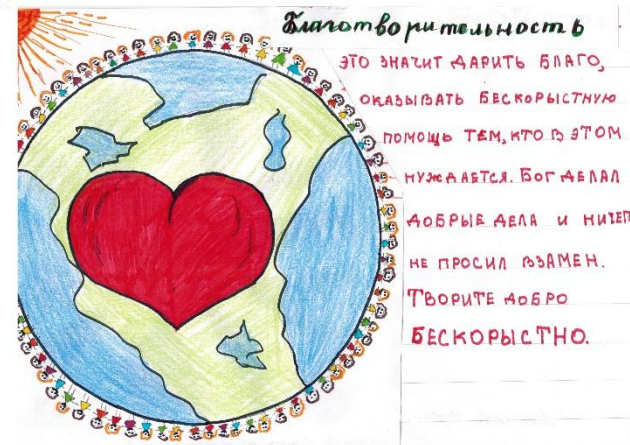 Благотворительность
ЭТО ЗНАЧИТ ДАРИТЬ БЛАГО,
ОКАЗЫВАТЬ БЕСКОРЫСТНУЮ
ПОМОЩЬ ТЕМ, КТО В ЭТОМ
НУЖДАЕТСЯ. БОГ ДЕЛАЛ
ДОБРЫЕ ДЕЛА И НИЧЕГ
НЕ ПРОСИЛ ВЗАМЕН.
ТВОРИТЕ ДОБРО
БЕСКОРЫСТНО.